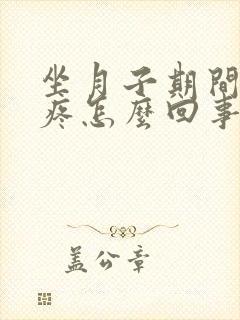 坐月子期間
疼怎麼回事
盖公章